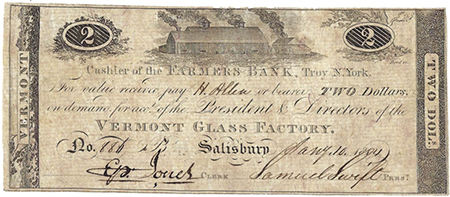 2
2
VERMONT
TWO DOL.
Cashier of the FARMERS BANK, Troy N.York.
For value receiv. pay H. Allen or bearer, TWO Dollars,
on demand, for acc. of the President & Directors of the
VERMONT GLASS FACTORY.
No. Salisbury Jany. 10
CLERK Samuel Swift PREST